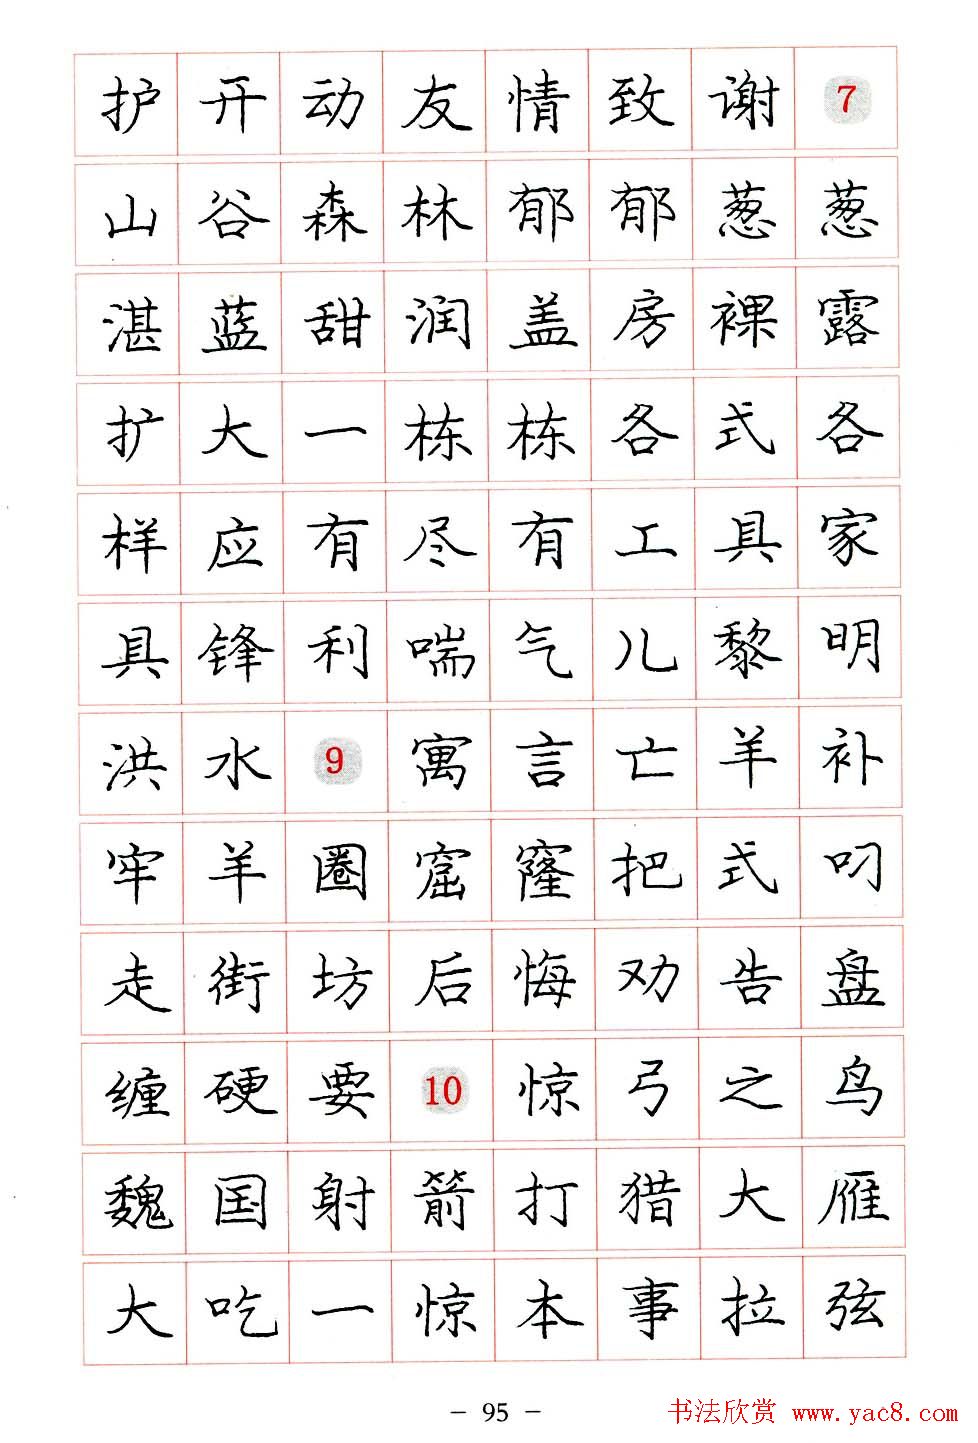 护开动友情致谢7
山谷森林郁郁葱葱
湛蓝甜润盖房裸露
扩大一栋栋各式各
样应有尽有工具家
具锋利喘气儿黎明
洪水9寓言亡羊补
牢羊圈窟窿把式叼
走街坊后悔劝告盘
缠硬要10惊弓之鸟
魏国射箭打猎大雁
大吃一惊本事拉弦
- 95 -
书法欣赏 www.yac8.com